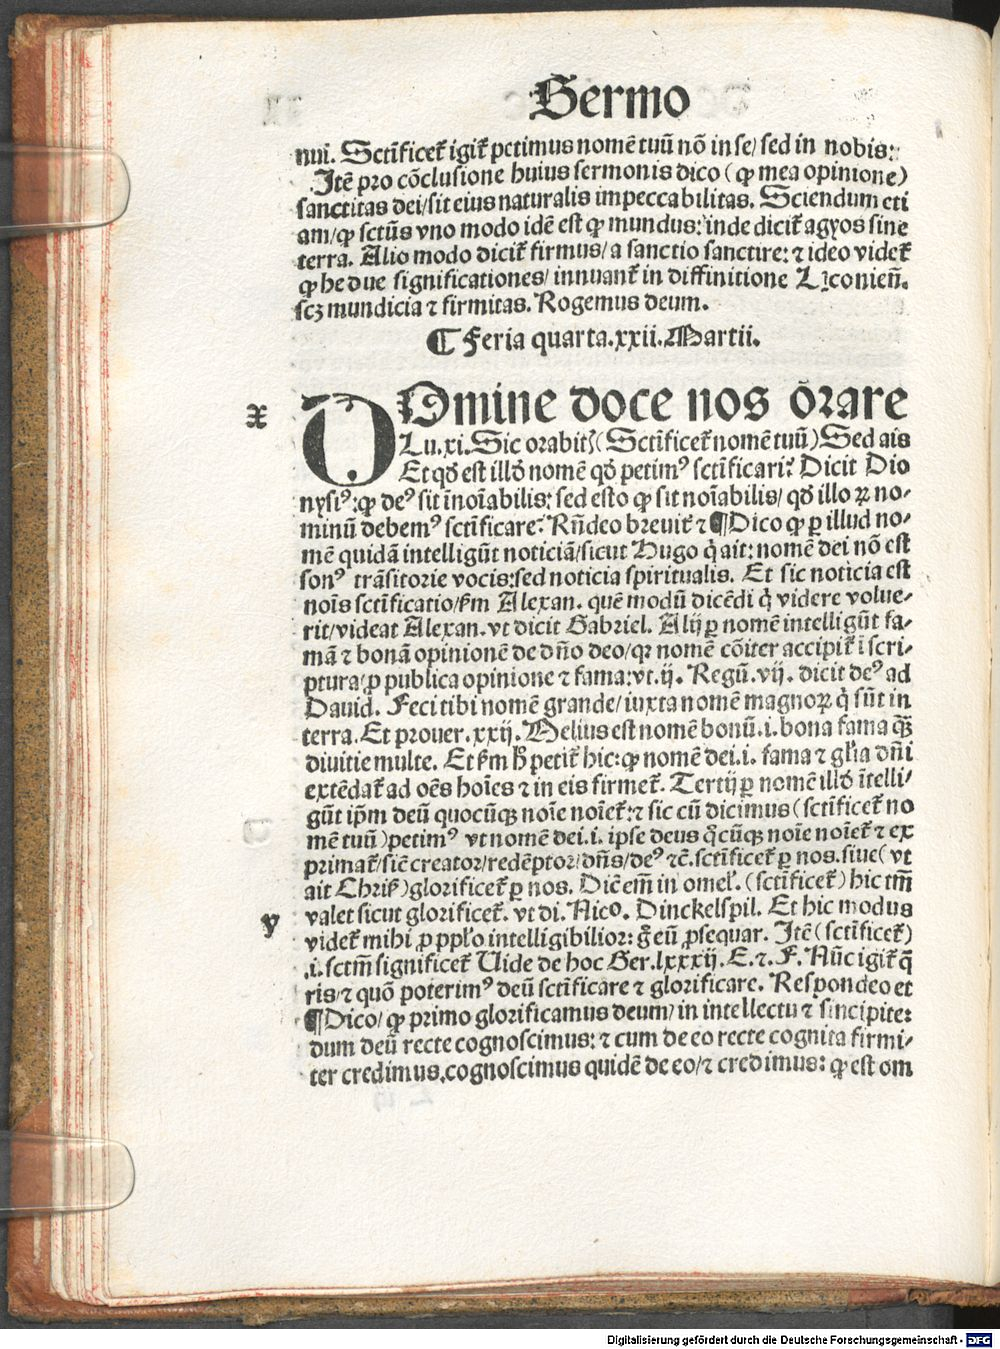 Sermo
nui. Sctīficet̄ igit̄ petimus nomē tuū nō in se/ sed in nobis:
Itē pro cōclusione huius sermonis dico (ꝙ mea opinione)
sanctitas dei/ sit eius naturalis impeccabilitas. Sciendum eti
am/ ꝙ sctūs vno modo idē est ꝙ mundus: inde dicit̄ agyos sine
terra. Alio modo dicit̄ firmus/ a sanctio sanctire: ⁊ ideo videt̄
ꝙ he due significationes/ innuant̄ in diffinitione Liconien̄.
scꝫ mundicia ⁊ firmitas. Rogemus deum.
¶ Feria quarta. xxii. Martii.
x
DOmine doce nos ōrare
Lu. xi. Sic orabitꝭ (Sctīficet̄ nomē tuū) Sed ais
Et qđ est illđ nomē qđ petimꝰ sctīficari? Dicit Dio
nysiꝰ: ꝙ deꝰ sit īnoīabilis: sed esto ꝙ sit noīabilis/ qđ illoꝝ no-
minū debemꝰ sctīficare? Rn̄deo breuit̄ ⁊ ¶ Dico ꝙ ꝑ illud no-
mē quidā intelligūt noticiā/ sicut Hugo q̇ ait: nomē dei nō est
sonꝰ trāsitorie vocis: sed noticia spiritualis. Et sic noticia est
noīs sctīficatio/ fm̄ Alexan. quē modū dicēdi q̇ videre volue-
rit/ videat Alexan. vt dicit Gabriel. Alij ꝑ nomē intelligūt fa-
mā ⁊ bonā opinionē de dn̄o deo/ qꝛ nomē cōiter accipit̄ ī scri-
ptura/ ꝓ publica opinione ⁊ fama: vt. ij. Regū. vij. dicit deꝰ ad
Dauid. Feci tibi nomē grande/ iuxta nomē magnoꝝ q̇ sūt in
terra. Et prouer. xxij. Melius est nomē bonū. i. bona fama q̄ꝫ
diuitie multe. Et fm̄ hͦ petit̄ hic: ꝙ nomē dei. i. fama ⁊ gl'ia dn̄i
extēdat̄ ad oēs hoīes ⁊ in eis firmet̄. Tertij ꝑ nomē illđ ītelli-
gūt ip̄m deū quocūqꝫ noīe noīet̄: ⁊ sic cū dicimus (sctīficet̄ no
mē tuū) petimꝰ vt nomē dei. i. ipse deus q̊cūqꝫ noīe noīet̄ ⁊ ex
primat̄/ siē creator/ redēptor/ dn̄s/ deꝰ ⁊c̄. sctīficet̄ ꝑ nos. siue (vt
ait Chriſ) glorificet̄ ꝑ nos. Dic̄ em̄ in omel'. (sctīficet̄) hic tm̄
y
valet sicut glorificet̄. vt di. Nico. Dinckelspil. Et hic modus
videt̄ mihi ꝓ ppl'o intelligibilior: g̊ eū ꝓsequar. Itē (sctīficet̄)
.i. sctm̄ significet̄ Uide de hoc Ser. lxxxij. E. ⁊. F. Nūc igit̄ q̄
ris/ ⁊ quō poterimꝰ deū sctīficare ⁊ glorificare. Respondeo et
¶ Dico/ ꝙ primo glorificamus deum/ in intellectu ⁊ sincipite:
dum deū recte cognoscimus: ⁊ cum de eo recte cognita firmi-
ter credimus. cognoscimus quidē de eo/ ⁊ credimus: ꝙ est om
Digitalisierung gefördert durch die Deutsche Forschungsgemeinschaft - DFG